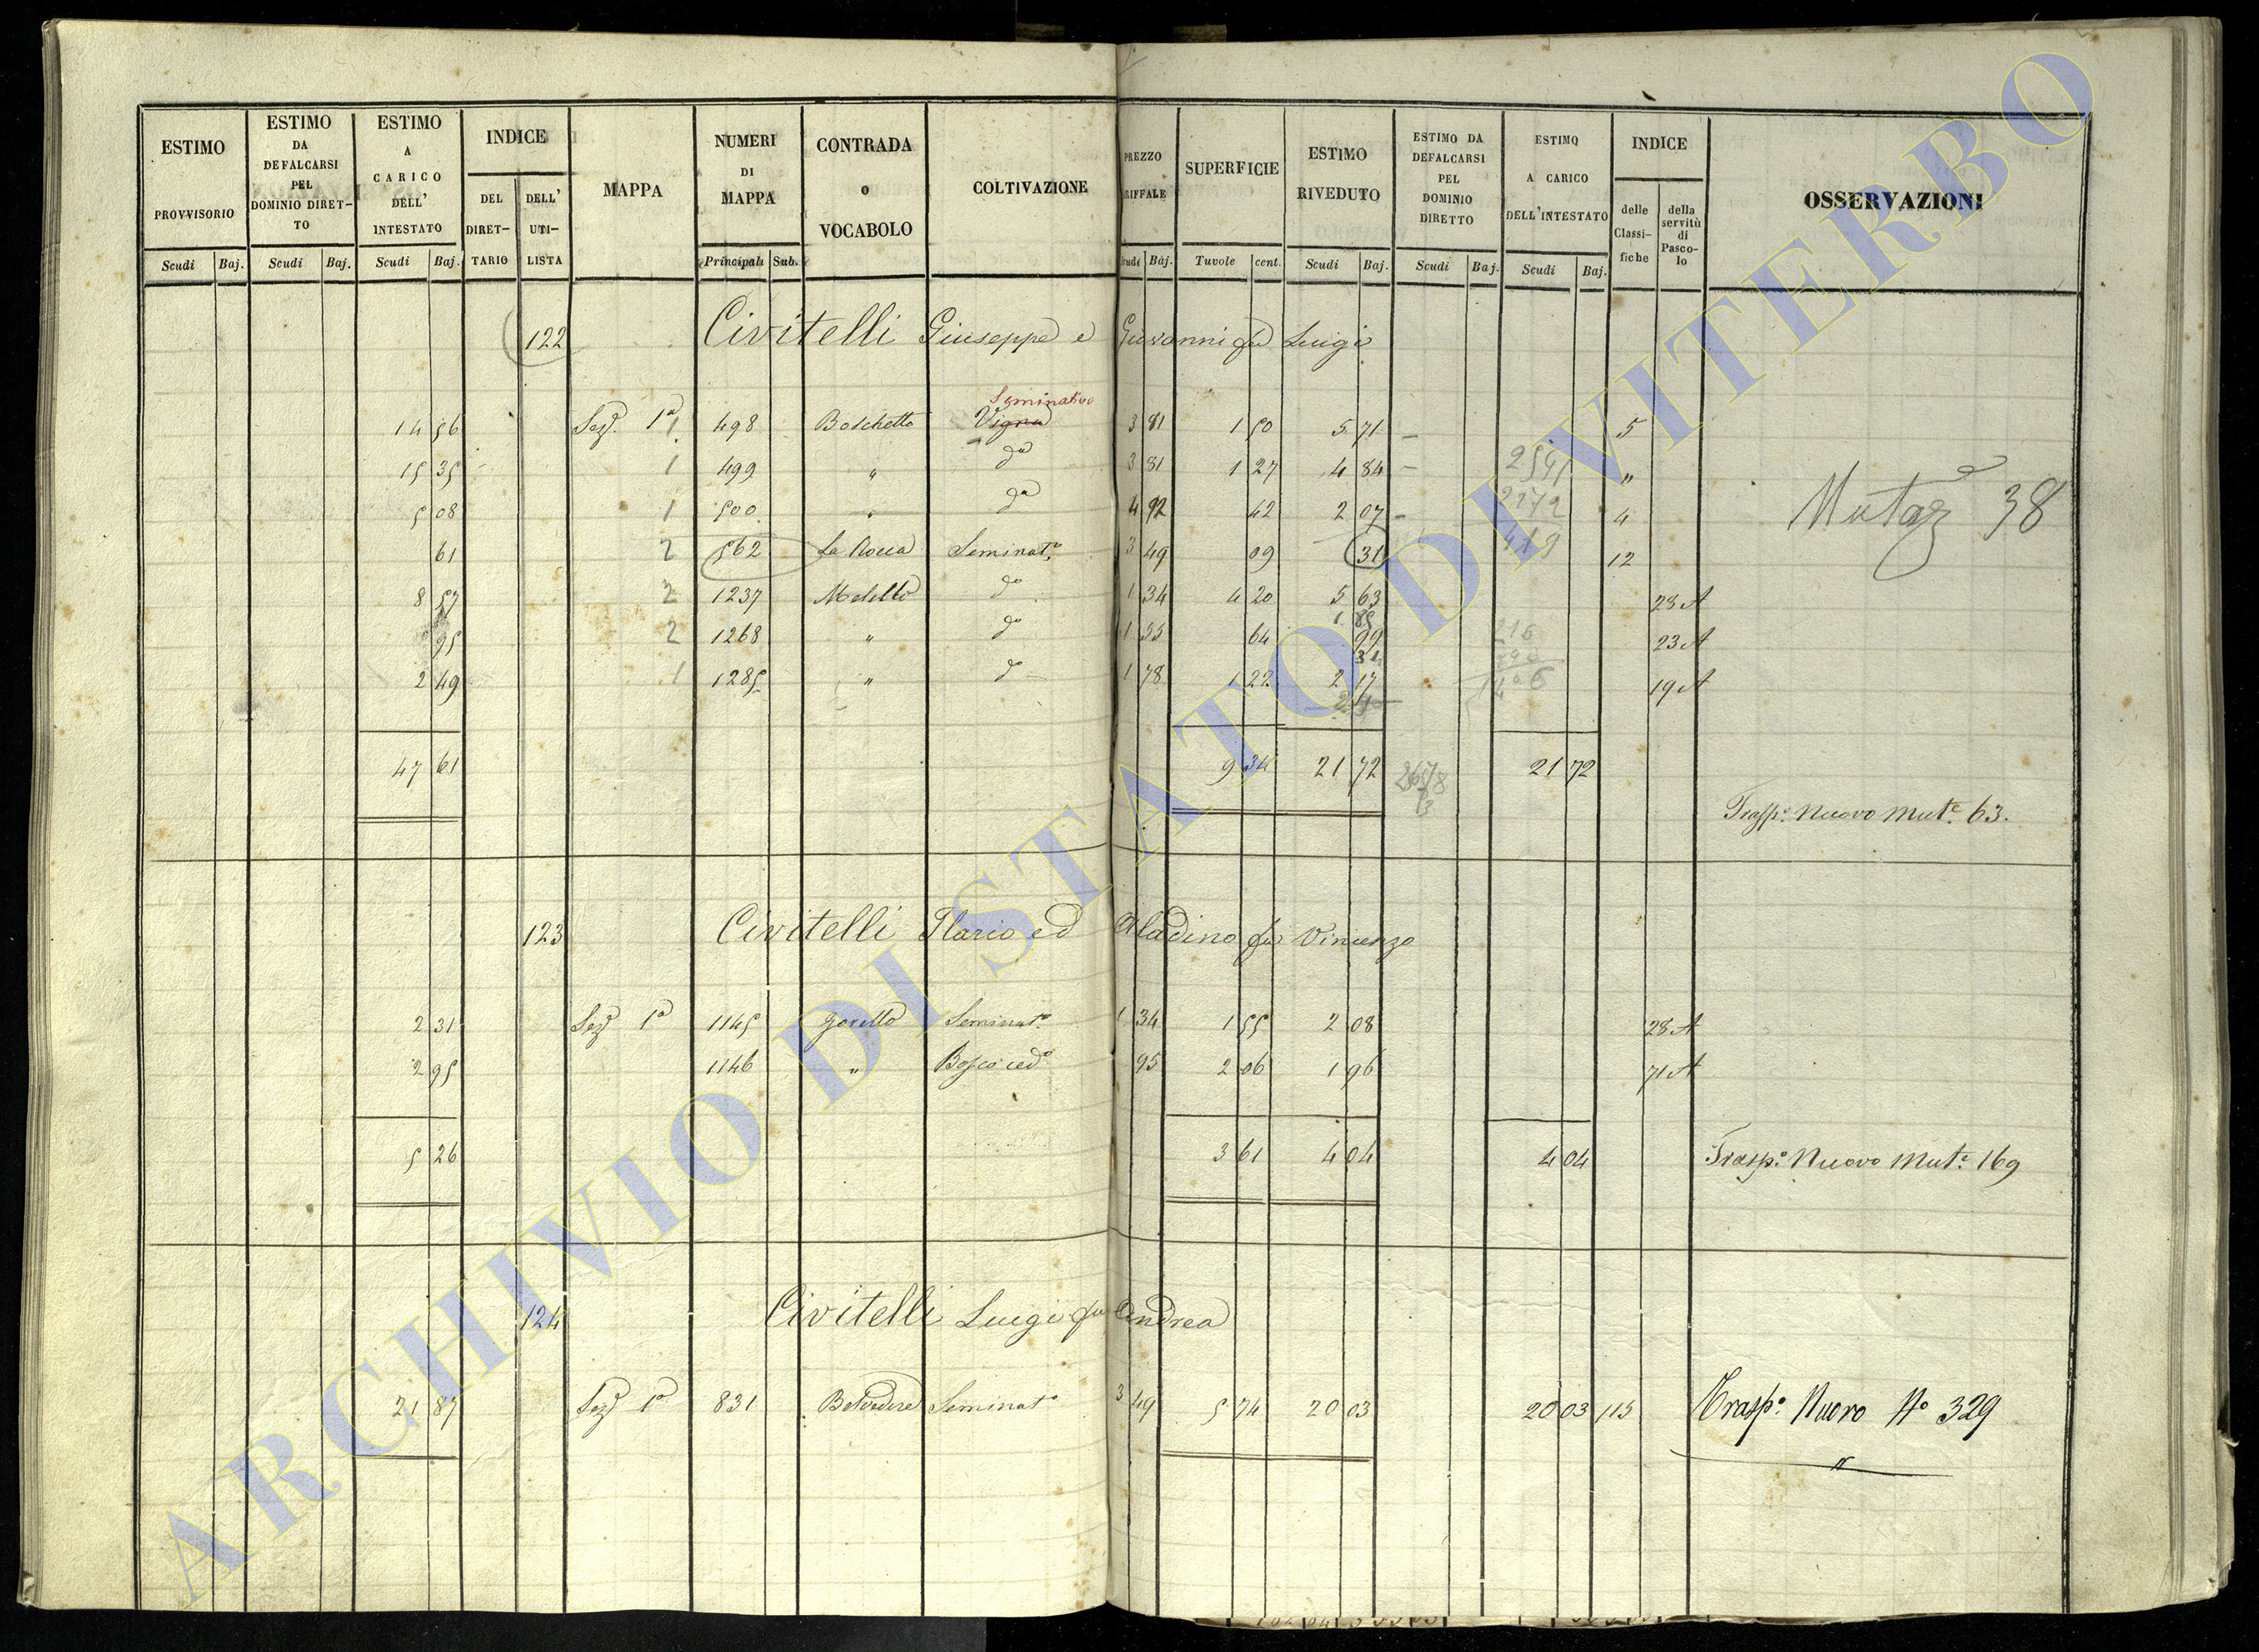 ESTIMO PROVVISORIO
ESTIMO DA DEFALCARSI PEL DOMINIO DIRET-TO
ESTIMO A CARICO DELL' INTESTATO
INDICE
DEL DIRET-TARIO
DELL' UTI-LISTA
MAPPA
NUMERI DI MAPPA
CONTRADA O VOCABOLO
COLTIVAZIONE
PREZZO RIFFALE
SUPERFICIE
ESTIMO RIVEDUTO
ESTIMO DA DEFALCARSI PEL DOMINIO DIRETTO
ESTIMO A CARICO DELL'INTESTATO
INDICE
delle Classi-fiche
della servitù di Pasco-lo
OSSERVAZIONI
Scudi Baj. Scudi Baj. Scudi Baj. Principali Sub. Scudi Baj. Tavole cent. Scudi Baj. Scudi Baj. Scudi Baj.
122 Civitelli Giuseppe e Giovanni fu Luigi
Seminativo
14 56 Sez. 1a 1 498 Boschetto Vigna 3 81 1 50 5 71 5
15 35 1 499 " da 3 81 1 27 4 84 "
5 08 1 500 " da 4 92 42 2 07 2172 4
Mutaz 38
61 2 562 La Rocca Seminato 3 49 09 31 419 12
8 57 2 1237 Meletto do 1 34 4 20 5 63 28 A
1 85
95 2 1268 " do 1 55 64 99 216 23 A
34
2 49 1 1285 " do 1 78 1 22 2 17 19 A
47 61 9 34 21 72 21 72
Trasspo Nuovo Mute 63.
123 Civitelli Ilario ed Aladino fu Vincenzo
2 31 Sez. 1a 1145 Goretto Seminato 1 34 1 55 2 08 28 A
2 95 1146 " Bosco cedo 95 2 06 1 96 71 A
5 26 3 61 4 04 4 04 Traspo Nuovo Mute 169
124 Civitelli Luigi fu Andrea
21 87 Sez. 1a 831 Belvedere Seminato 3 49 5 74 20 03 20 03 115 Trasspo Nuovo No 329
"
ARCHIVIO DI STATO DI VITERBO